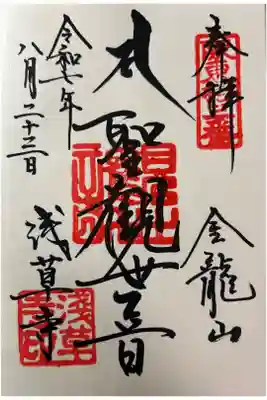 奉拝
金龍山
聖觀世音
令和七年
八月二十三日
浅草寺